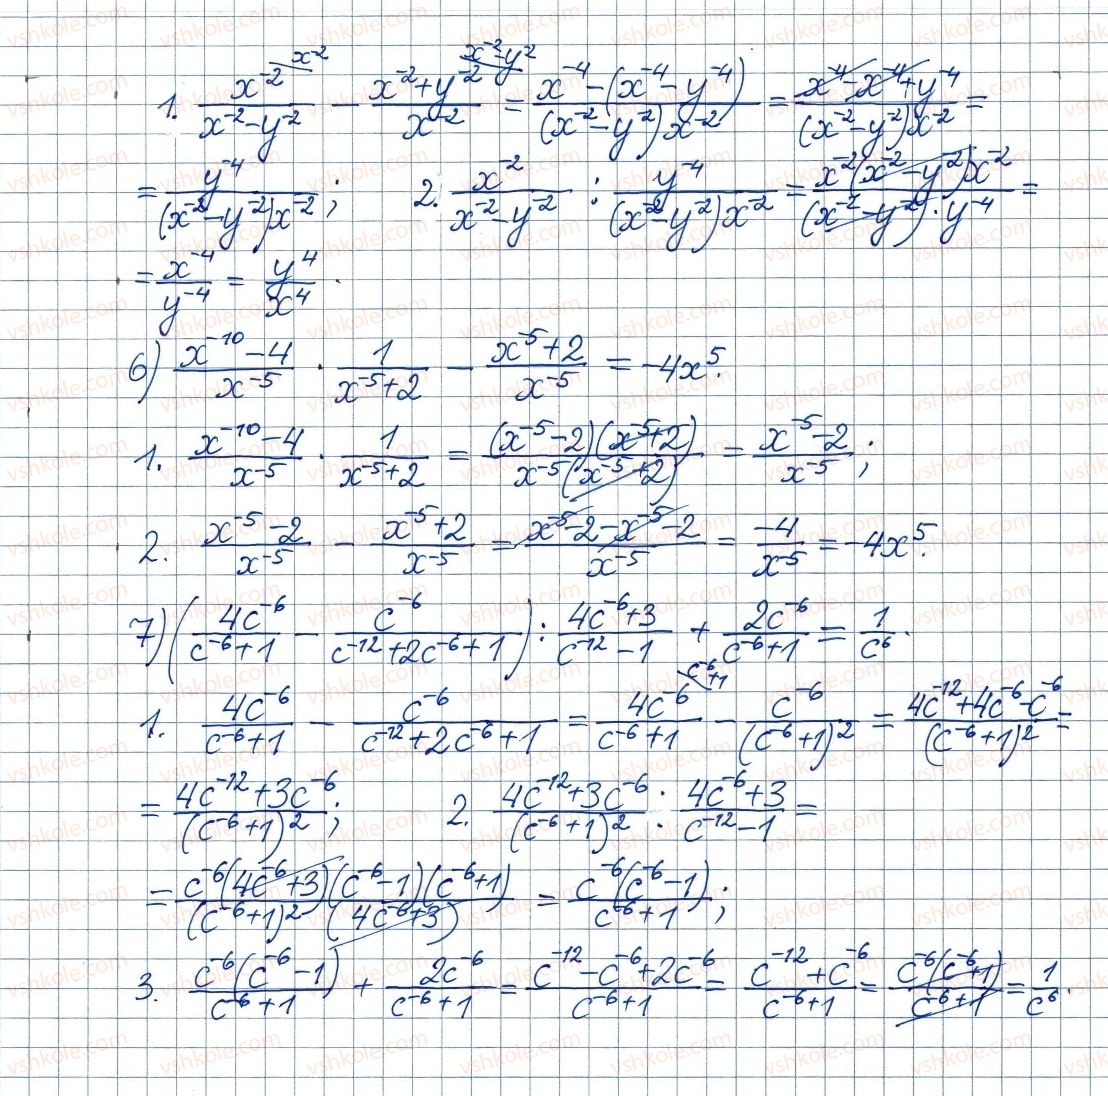 1. \frac{x^{-2}}{x^{-2}-y^{-2}}^{x^{-2}} - \frac{x^{-2}+y^{-2}}{x^{-2}}^{x^{-2}-y^{-2}} = \frac{x^{-4}-(x^{-4}-y^{-4})}{(x^{-2}-y^{-2})x^{-2}} = \frac{x^{-4}-x^{-4}+y^{-4}}{(x^{-2}-y^{-2})x^{-2}} =
= \frac{y^{-4}}{(x^{-2}-y^{-2})x^{-2}}; 2. \frac{x^{-2}}{x^{-2}-y^{-2}} : \frac{y^{-4}}{(x^{-2}-y^{-2})x^{-2}} = \frac{x^{-2}(x^{-2}-y^{-2})x^{-2}}{(x^{-2}-y^{-2}) \cdot y^{-4}} =
= \frac{x^{-4}}{y^{-4}} = \frac{y^4}{x^4}.
6) \frac{x^{-10}-4}{x^{-5}} \cdot \frac{1}{x^{-5}+2} - \frac{x^{-5}+2}{x^{-5}} = -4x^5.
1. \frac{x^{-10}-4}{x^{-5}} \cdot \frac{1}{x^{-5}+2} = \frac{(x^{-5}-2)(x^{-5}+2)}{x^{-5}(x^{-5}+2)} = \frac{x^{-5}-2}{x^{-5}};
2. \frac{x^{-5}-2}{x^{-5}} - \frac{x^{-5}+2}{x^{-5}} = \frac{x^{-5}-2-x^{-5}-2}{x^{-5}} = \frac{-4}{x^{-5}} = -4x^5.
7) \left(\frac{4c^{-6}}{c^{-6}+1} - \frac{c^{-6}}{c^{-12}+2c^{-6}+1}\right) : \frac{4c^{-6}+3}{c^{-12}-1} + \frac{2c^{-6}}{c^{-6}+1} = \frac{1}{c^6}.
1. \frac{4c^{-6}}{c^{-6}+1} - \frac{c^{-6}}{c^{-12}+2c^{-6}+1} = \frac{4c^{-6}}{c^{-6}+1}^{c^{-6}+1} - \frac{c^{-6}}{(c^{-6}+1)^2} = \frac{4c^{-12}+4c^{-6}-c^{-6}}{(c^{-6}+1)^2} =
= \frac{4c^{-12}+3c^{-6}}{(c^{-6}+1)^2}; 2. \frac{4c^{-12}+3c^{-6}}{(c^{-6}+1)^2} : \frac{4c^{-6}+3}{c^{-12}-1} =
= \frac{c^{-6}(4c^{-6}+3)(c^{-6}-1)(c^{-6}+1)}{(c^{-6}+1)^2(4c^{-6}+3)} = \frac{c^{-6}(c^{-6}-1)}{c^{-6}+1};
3. \frac{c^{-6}(c^{-6}-1)}{c^{-6}+1} + \frac{2c^{-6}}{c^{-6}+1} = \frac{c^{-12}-c^{-6}+2c^{-6}}{c^{-6}+1} = \frac{c^{-12}+c^{-6}}{c^{-6}+1} = \frac{c^{-6}(c^{-6}+1)}{c^{-6}+1} = \frac{1}{c^6}.
vshkole.com